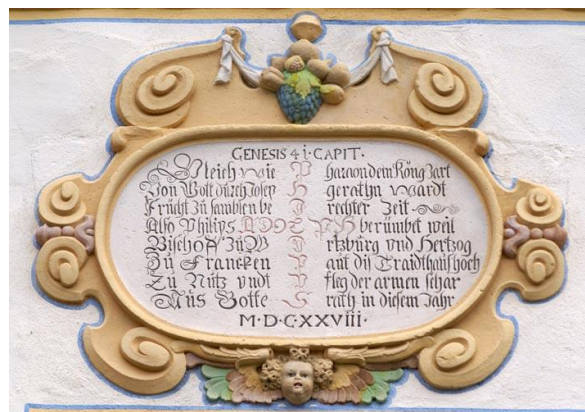 GENESIS 41·CAPIT·
Gleich wie Pharaon dem König zart
Von Gott durch Josep H gerathn wardt
Frücht zů samblen be I rechter Zeit
Also Philips ADOLPH berümbet weit
Bischoff zů WIrtzburg vnd Hertzog
Zů Francken Paut diß Traidthauß hoch
Zu Nůtz vndt Vfleg der armen schar
Aůs Gotte Srath in diesem Jahr
M·D·C·XXVIII·